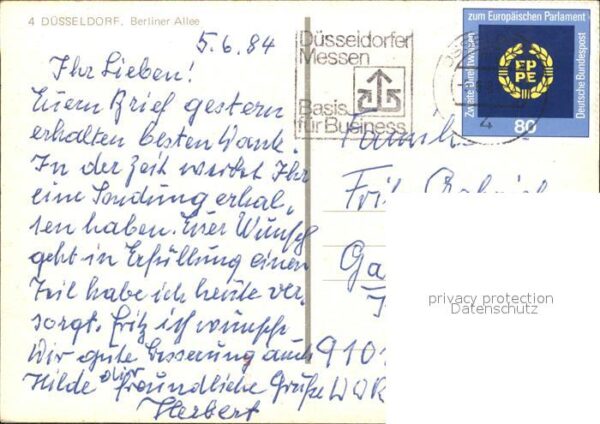 4 DÜSSELDORF. Berliner Allee
5.6.84
Düsseldorfer
Messen
Basis
für Business
Zweite Direktwahlen
zum Europäischen Parlament
Deutsche Bundespost
EP
PE
80
4
Ihr Lieben!
Euern Brief gestern
erhalten besten Dank.
In der Zeit werdet Ihr
eine Sendung erhal-
ten haben. Euer Wunsch
geht in Erfüllung einen
Teil habe ich heute ver-
sorgt. Fritz ich wünsche
Dir gute Besserung auch
Hilde Dir freundliche Grüße
Herbert
Familie
Fritz
Ga
9101
privacy protection
Datenschutz